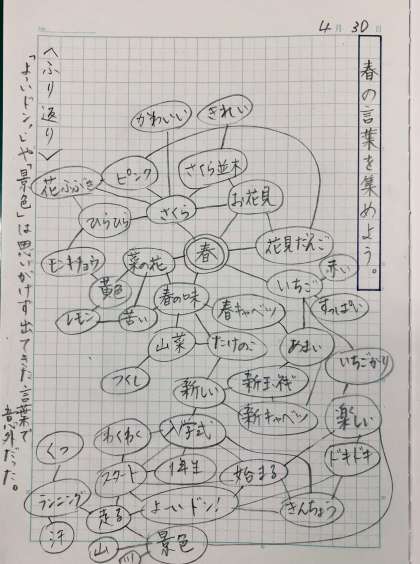 4月30日
春の言葉を集めよう。
かわいい
きれい
さくら並木
ピンク
花ふぶき
さくら
お花見
ひらひら
春
花見だんご
モンキチョウ
菜の花
黄色
いちご
赤い
すっぱい
春の味
春キャベツ
レモン
苦い
山菜
たけのこ
あまい
いちごがり
つくし
新しい
新玉ネギ
新キャベツ
楽しい
わくわく
入学式
ドキドキ
くつ
スタート
1年生
始まる
ランニング
走る
よーいドン!
きんちょう
汗
山
川
景色
<ふり返り>
「よーいドン」じや「景色」は思いがけず出てきた言葉で
意外だった。